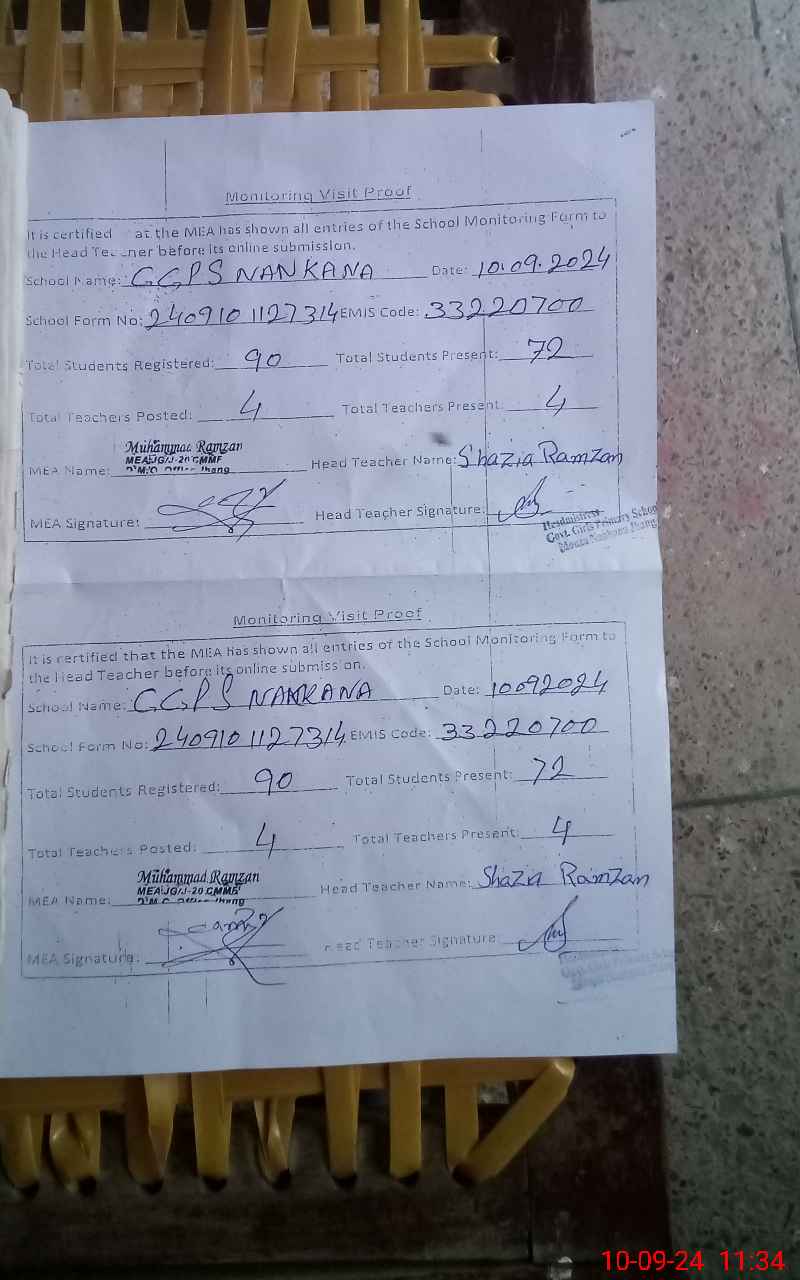 Monitoring Visit Proof
It is certified at the MEA has shown all entries of the School Monitoring Form to
the Head before its online submission.
School Name: GGPS NANKANA Date: 10.09.2024
School Form No: 2409101127314 EMIS Code: 33220700
Total Students Registered: 90 Total Students Present: 72
Total Teachers Posted: 4 Total Teachers Present: 4
Muhammad Ramzan
MEA Name: Head Teacher Name: Shazia Ramzan
MEA Signature: Head Teacher Signature:
Headmistress
Govt. Girls Primary School
Mouza Nankana Jhang
Monitoring Visit Proof
It is certified that the MEA has shown all entries of the School Monitoring Form to
the Head Teacher before its online submission.
School Name: GGPS NANKANA Date: 10092024
School Form No: 2409101127314 EMIS Code: 33220700
Total Students Registered: 90 Total Students Present: 72
Total Teachers Posted: 4 Total Teachers Present: 4
Muhammad Ramzan
MEA Name: Head Teacher Name: Shazia Ramzan
MEA Signature: Head Teacher Signature:
10-09-24 11:34